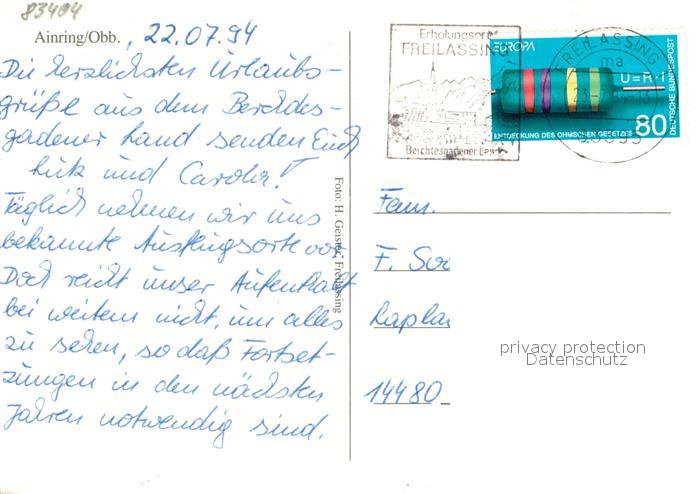 83404
Ainring/Obb. , 22.07.94
Die herzlichsten Urlaubs-
grüße aus dem Berchdes-
gadener Land senden Euch
Lutz und Carola!
Täglich nehmen wir uns
bekannte Ausflugsorte vor.
Doch reicht unser Aufenthalt
bei weitem nicht, um alles
zu sehen, so daß Fortset-
zungen in den nächsten
Jahren notwendig sind.
Foto: H. Geisler, Freilassing
Erholungsort
FREILASSING
Berchtesgadener Land
EUROPA
FREILASSING
ma
U=R·I
ENTDECKUNG DES OHMSCHEN GESETZES
80
DEUTSCHE BUNDESPOST
Fam.
F.
14480
privacy protection
Datenschutz